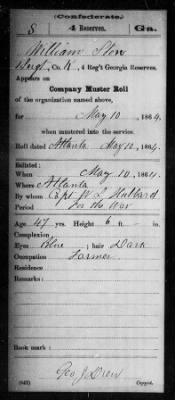 (Confederate.)
S 4 Reserves. Ga.
William
Sergt, Co. K, 4 Reg't Georgia Reserves.
Appears on
Company Muster Roll
of the organization named above,
for May 10, 1864,
when mustered into the service.
Roll dated Atlanta May 10, 1864.
Enlisted:
When May 10, 1864.
Where Atlanta
By whom Capt W. L. Hubbard
Period For the War
Age 47 yrs. Height 6 ft. in.
Complexion
Eyes Blue ; hair Dark
Occupation Farmer
Residence
Remarks:
Book mark:
Geo J Drew
(642) Copyist.